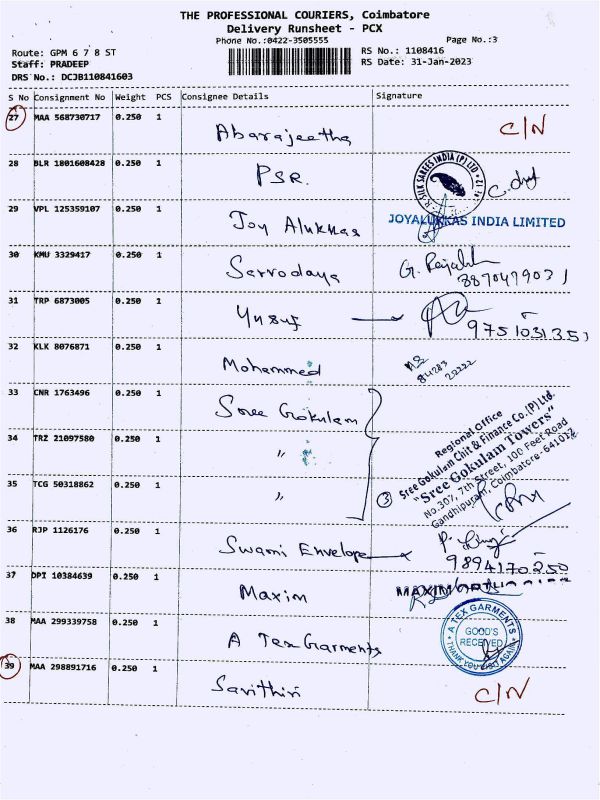 THE PROFESSIONAL COURIERS, Coimbatore
Delivery Runsheet - PCX
Phone No.:0422-3505555 Page No.:3
Route: GPM 6 7 8 ST RS No.: 1108416
Staff: PRADEEP RS Date: 31-Jan-2023
DRS No.: DCJB110841603
S No Consignment No Weight PCS Consignee Details Signature
27 MAA 568730717 0.250 1 Abarajeetha C/N
28 BLR 1801608428 0.250 1 PSR. SILK SAREES INDIA (P) LTD
29 VPL 125359107 0.250 1 Joy Alukkas JOYALUKKAS INDIA LIMITED
30 KMU 3329417 0.250 1 Sarvodaya G.
31 TRP 6873005 0.250 1 Yusuf 9751031351
32 KLK 8076871 0.250 1 Mohammed 84283 22222
33 CNR 1763496 0.250 1 Sree Gokulam
34 TRZ 21097580 0.250 1 "
35 TCG 50318862 0.250 1 " 3
Regional Office
Sree Gokulam Chit & Finance Co.(P) Ltd.
"Sree Gokulam Towers"
No.307, 7th Street, 100 Feet Road
Gandhipuram, Coimbatore-641012
36 RJP 1126176 0.250 1 Swami Envelope 9894170250
37 DPI 10384639 0.250 1 Maxim MAXIM
38 MAA 299339758 0.250 1 A Tex Garments A TEX GARMENTS
GOOD'S
RECEIVED
THANK YOU VISIT AGAIN
39 MAA 298891716 0.250 1 Savithiri C/N